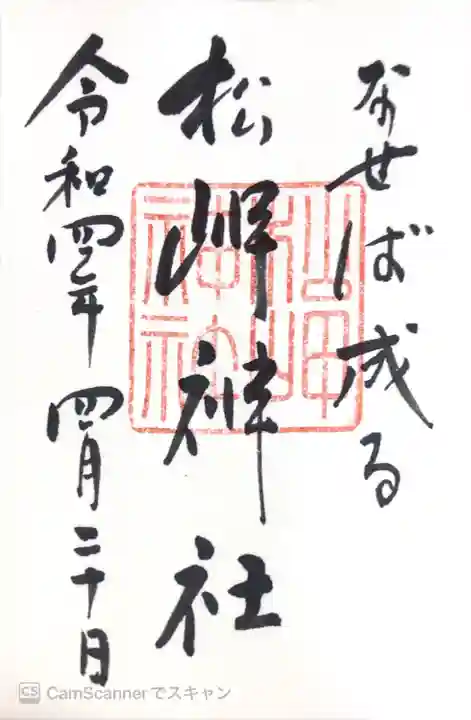 なせば成る
松岬神社
令和四年 四月二十日
CS CamScannerでスキャン